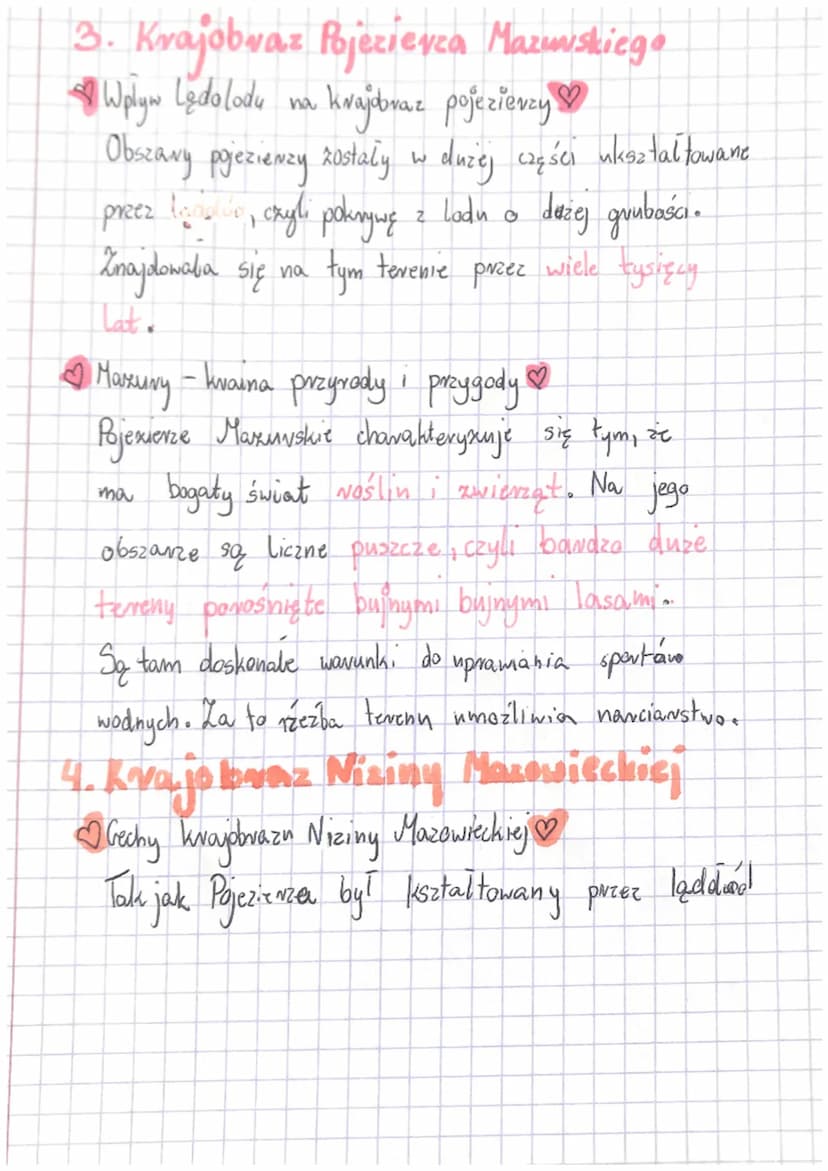 3. Krajobraz Pojezierza Mazurskiego
Wpływ Lądolodu na krajobraz pojezierzy
Obszary pojezierzy zostały w dużej części ukształtowane
przez , czyli pokrywę z lodu o dużej grubości.
Znajdowała się na tym terenie przez wiele tysięcy
lat.
Mazury - kraina przyrody i przygody
Pojezierze Mazurskie charakteryzuje się tym, że
ma bogaty świat roślin i zwierząt. Na jego
obszarze są liczne puszcze, czyli bardzo duże
tereny porośnięte bujnymi bujnymi lasami.
Są tam doskonałe warunki do uprawiania sportów
wodnych. Za to rzeźba terenu umożliwia narciarstwo.
4. Krajobraz Niziny Mazowieckiej
Cechy krajobrazu Niziny Mazowieckiej
Tak jak Pojezierza był kształtowany przez